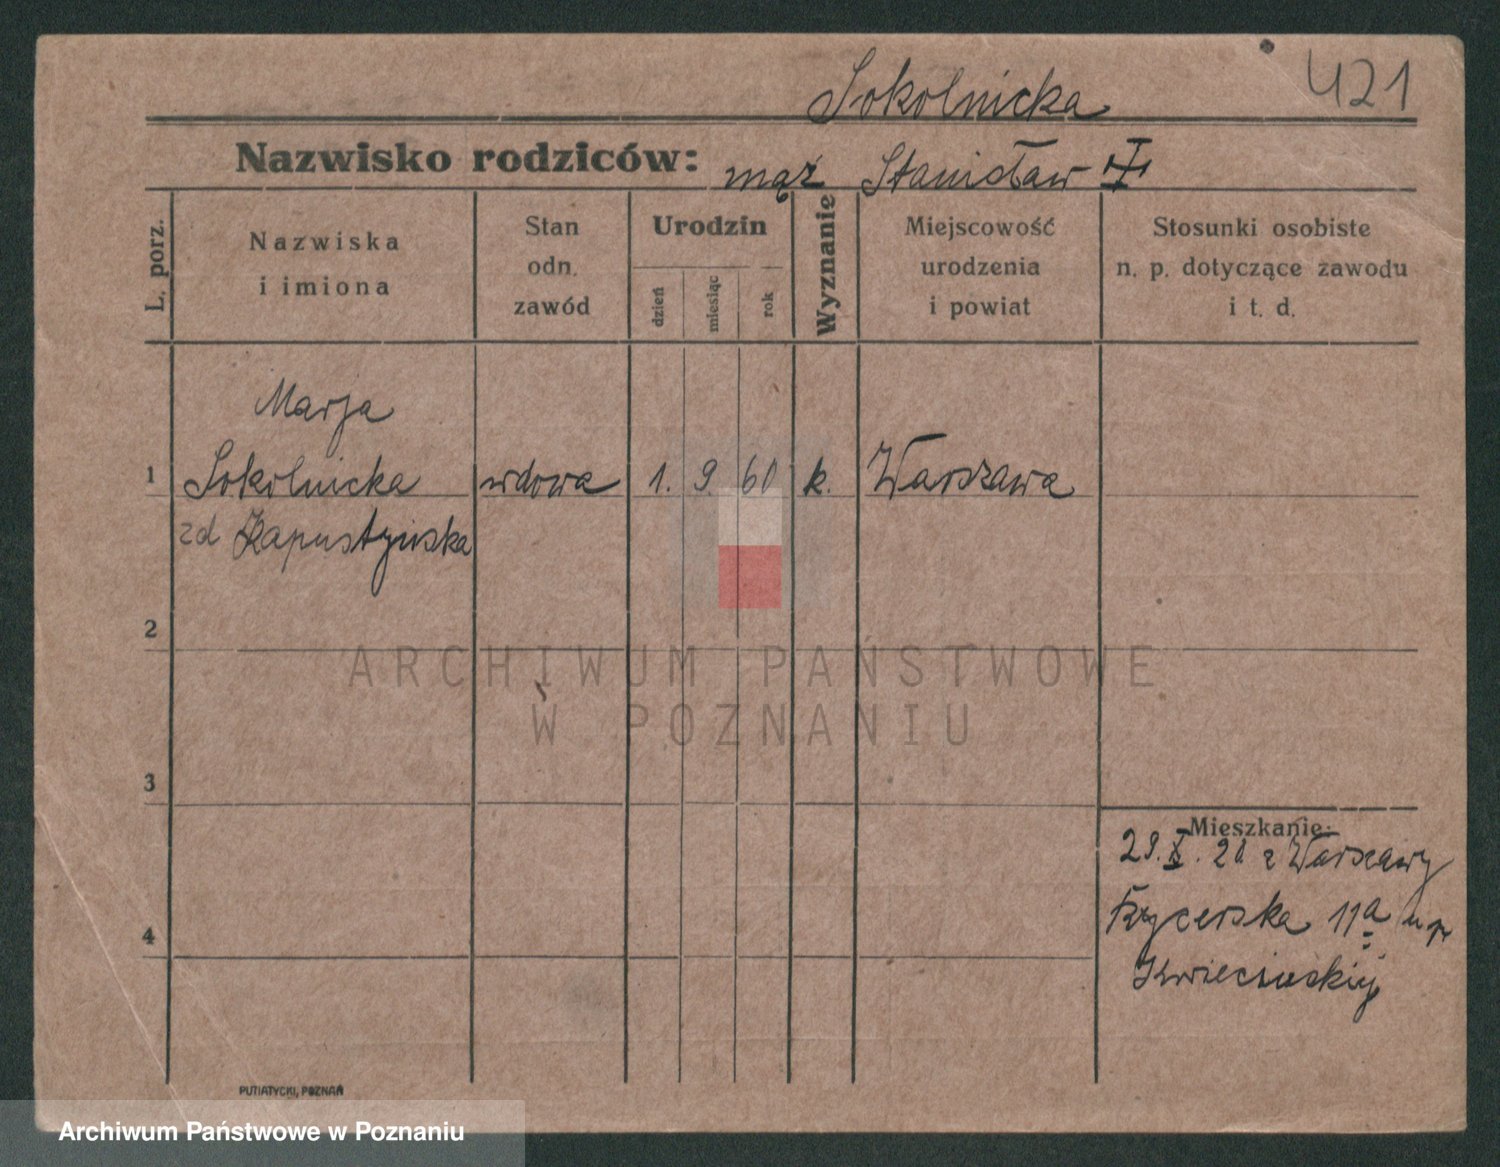 Sokolnicka 421
Nazwisko rodziców: mąż Stanisław
L. porz.
Nazwiska i imiona
Stan odn. zawód
Urodzin
dzień
miesiąc
rok
Wyznanie
Miejscowość urodzenia i powiat
Stosunki osobiste n. p. dotyczące zawodu i t. d.
Marja
1 Sokolnicka wdowa 1. 9. 60 k. Warszawa
zd Kapustyńska
2
3
4
Mieszkanie:
29. X. 20 z Warszawy
Rycerska 11a u pr
Kwiecińskiej
PUTIATYCKI, POZNAŃ
ARCHIWUM PAŃSTWOWE
W POZNANIU
Archiwum Państwowe w Poznaniu